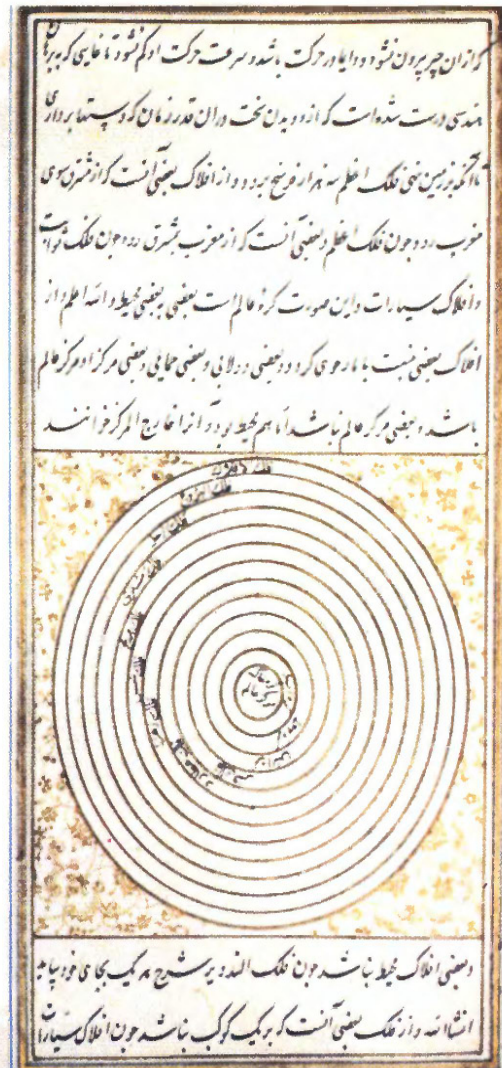 که ازان چیز بیرون نشود و دایما در حرکت باشد و سرعت حرکت او کم نشود تا غایتی که به برهان
هندسی درست شده است که از دویدن سخت دران قدر زمان که دستها بردارد
تا آنکه بزمین نهی فلک اعظم سه هزار فرسخ برود و از افلاک بعضی آنست که از مشرق سوی
مغرب رود چون فلک اعظم و بعضی آنست که از مغرب بمشرق رود چون فلک ثوابت
و افلاک سیارات و این صورت کرهٔ عالم است بعضی ببعضی محیط والله اعلم و از
افلاک بعضی نسبت با ما رحوی گردد و بعضی دولابی و بعضی حمایلی بعضی مرکز او مرکز عالم
باشد و بعضی مرکز عالم نباشد اما هم محیط بود و آنرا خارج المرکز خوانند
فلک
فلک البروج
فلک زحل
فلک مشتری
فلک مریخ
فلک عطارد
فلک قمر
مرکز عالم
و بعضی افلاک محیط نباشد چون فلک التدویر شرح هر یک بجای خود بیاید
انشاالله و از فلک بعضی آنست که بر یک کوکب نباشد چون افلاک سیارات